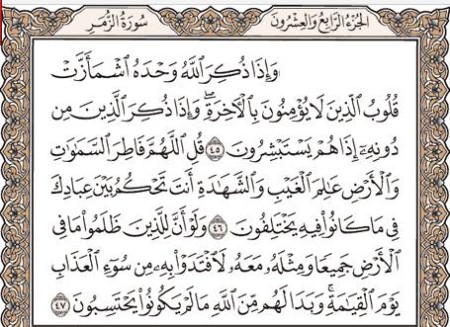 الجزء الرابع والعشرون سورة الزمر
وَإِذَا ذُكِرَ ٱللَّهُ وَحْدَهُ ٱشْمَأَزَّتْ
قُلُوبُ ٱلَّذِينَ لَا يُؤْمِنُونَ بِٱلْـَٔاخِرَةِۖ وَإِذَا ذُكِرَ ٱلَّذِينَ مِن
دُونِهِۦٓ إِذَا هُمْ يَسْتَبْشِرُونَ ٤٥ قُلِ ٱللَّهُمَّ فَاطِرَ ٱلسَّمَٰوَٰتِ
وَٱلْأَرْضِ عَٰلِمَ ٱلْغَيْبِ وَٱلشَّهَٰدَةِ أَنتَ تَحْكُمُ بَيْنَ عِبَادِكَ
فِى مَا كَانُوا۟ فِيهِ يَخْتَلِفُونَ ٤٦ وَلَوْ أَنَّ لِلَّذِينَ ظَلَمُوا۟ مَا فِى
ٱلْأَرْضِ جَمِيعًا وَمِثْلَهُۥ مَعَهُۥ لَٱفْتَدَوْا۟ بِهِۦ مِن سُوٓءِ ٱلْعَذَابِ
يَوْمَ ٱلْقِيَٰمَةِۚ وَبَدَا لَهُم مِّنَ ٱللَّهِ مَا لَمْ يَكُونُوا۟ يَحْتَسِبُونَ ٤٧